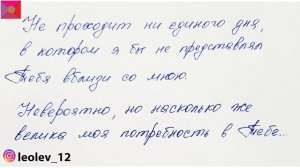 Не проходит ни единого дня,
в котором я бы не представлял
Тебя вблизи со мною.
Невероятно, но насколько же
велика моя потребность в Тебе..
leolev_12